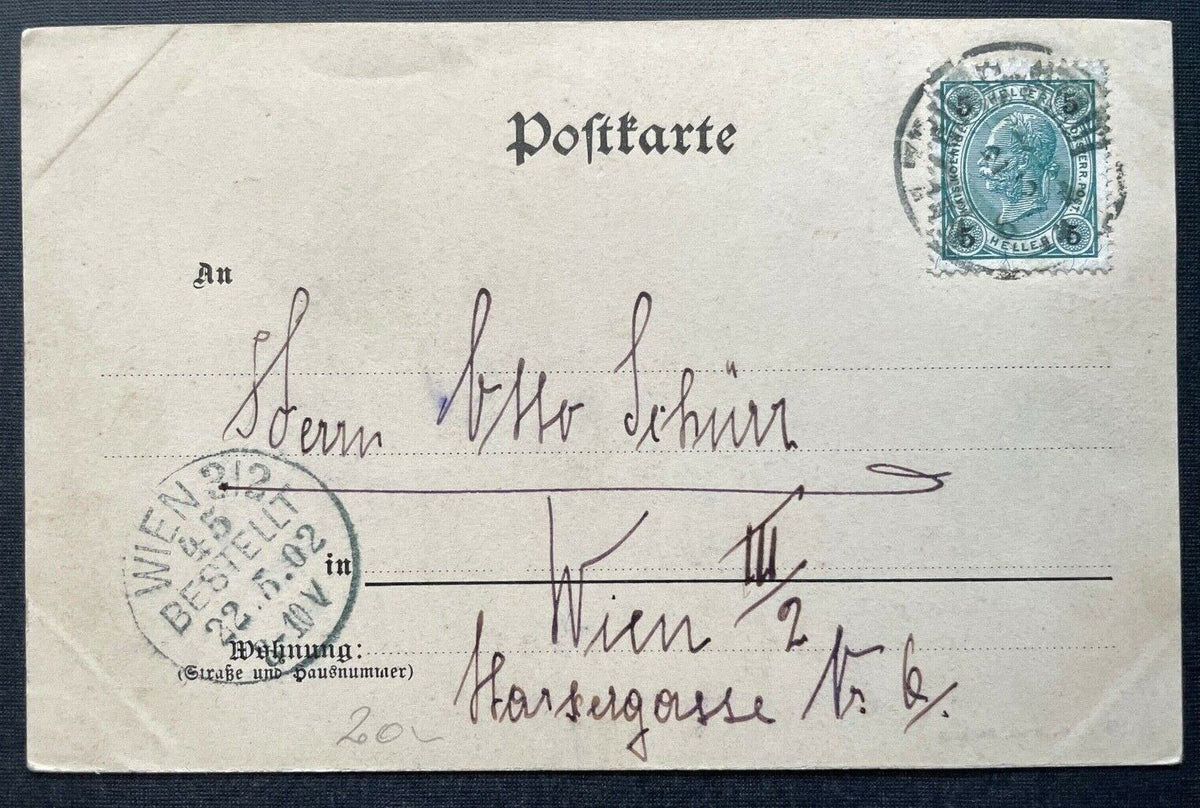 Postkarte
HELLER
5 5
KAIS. KOENIGL. OESTERR. POST.
5 5
HELLER
An
Herrn Otto Schürr
WIEN 3/2
45
BESTELLT
22.5.02
8-10V
in
Wien III/2
Wohnung:
(Straße und Hausnummer)
Nr. 6.
20